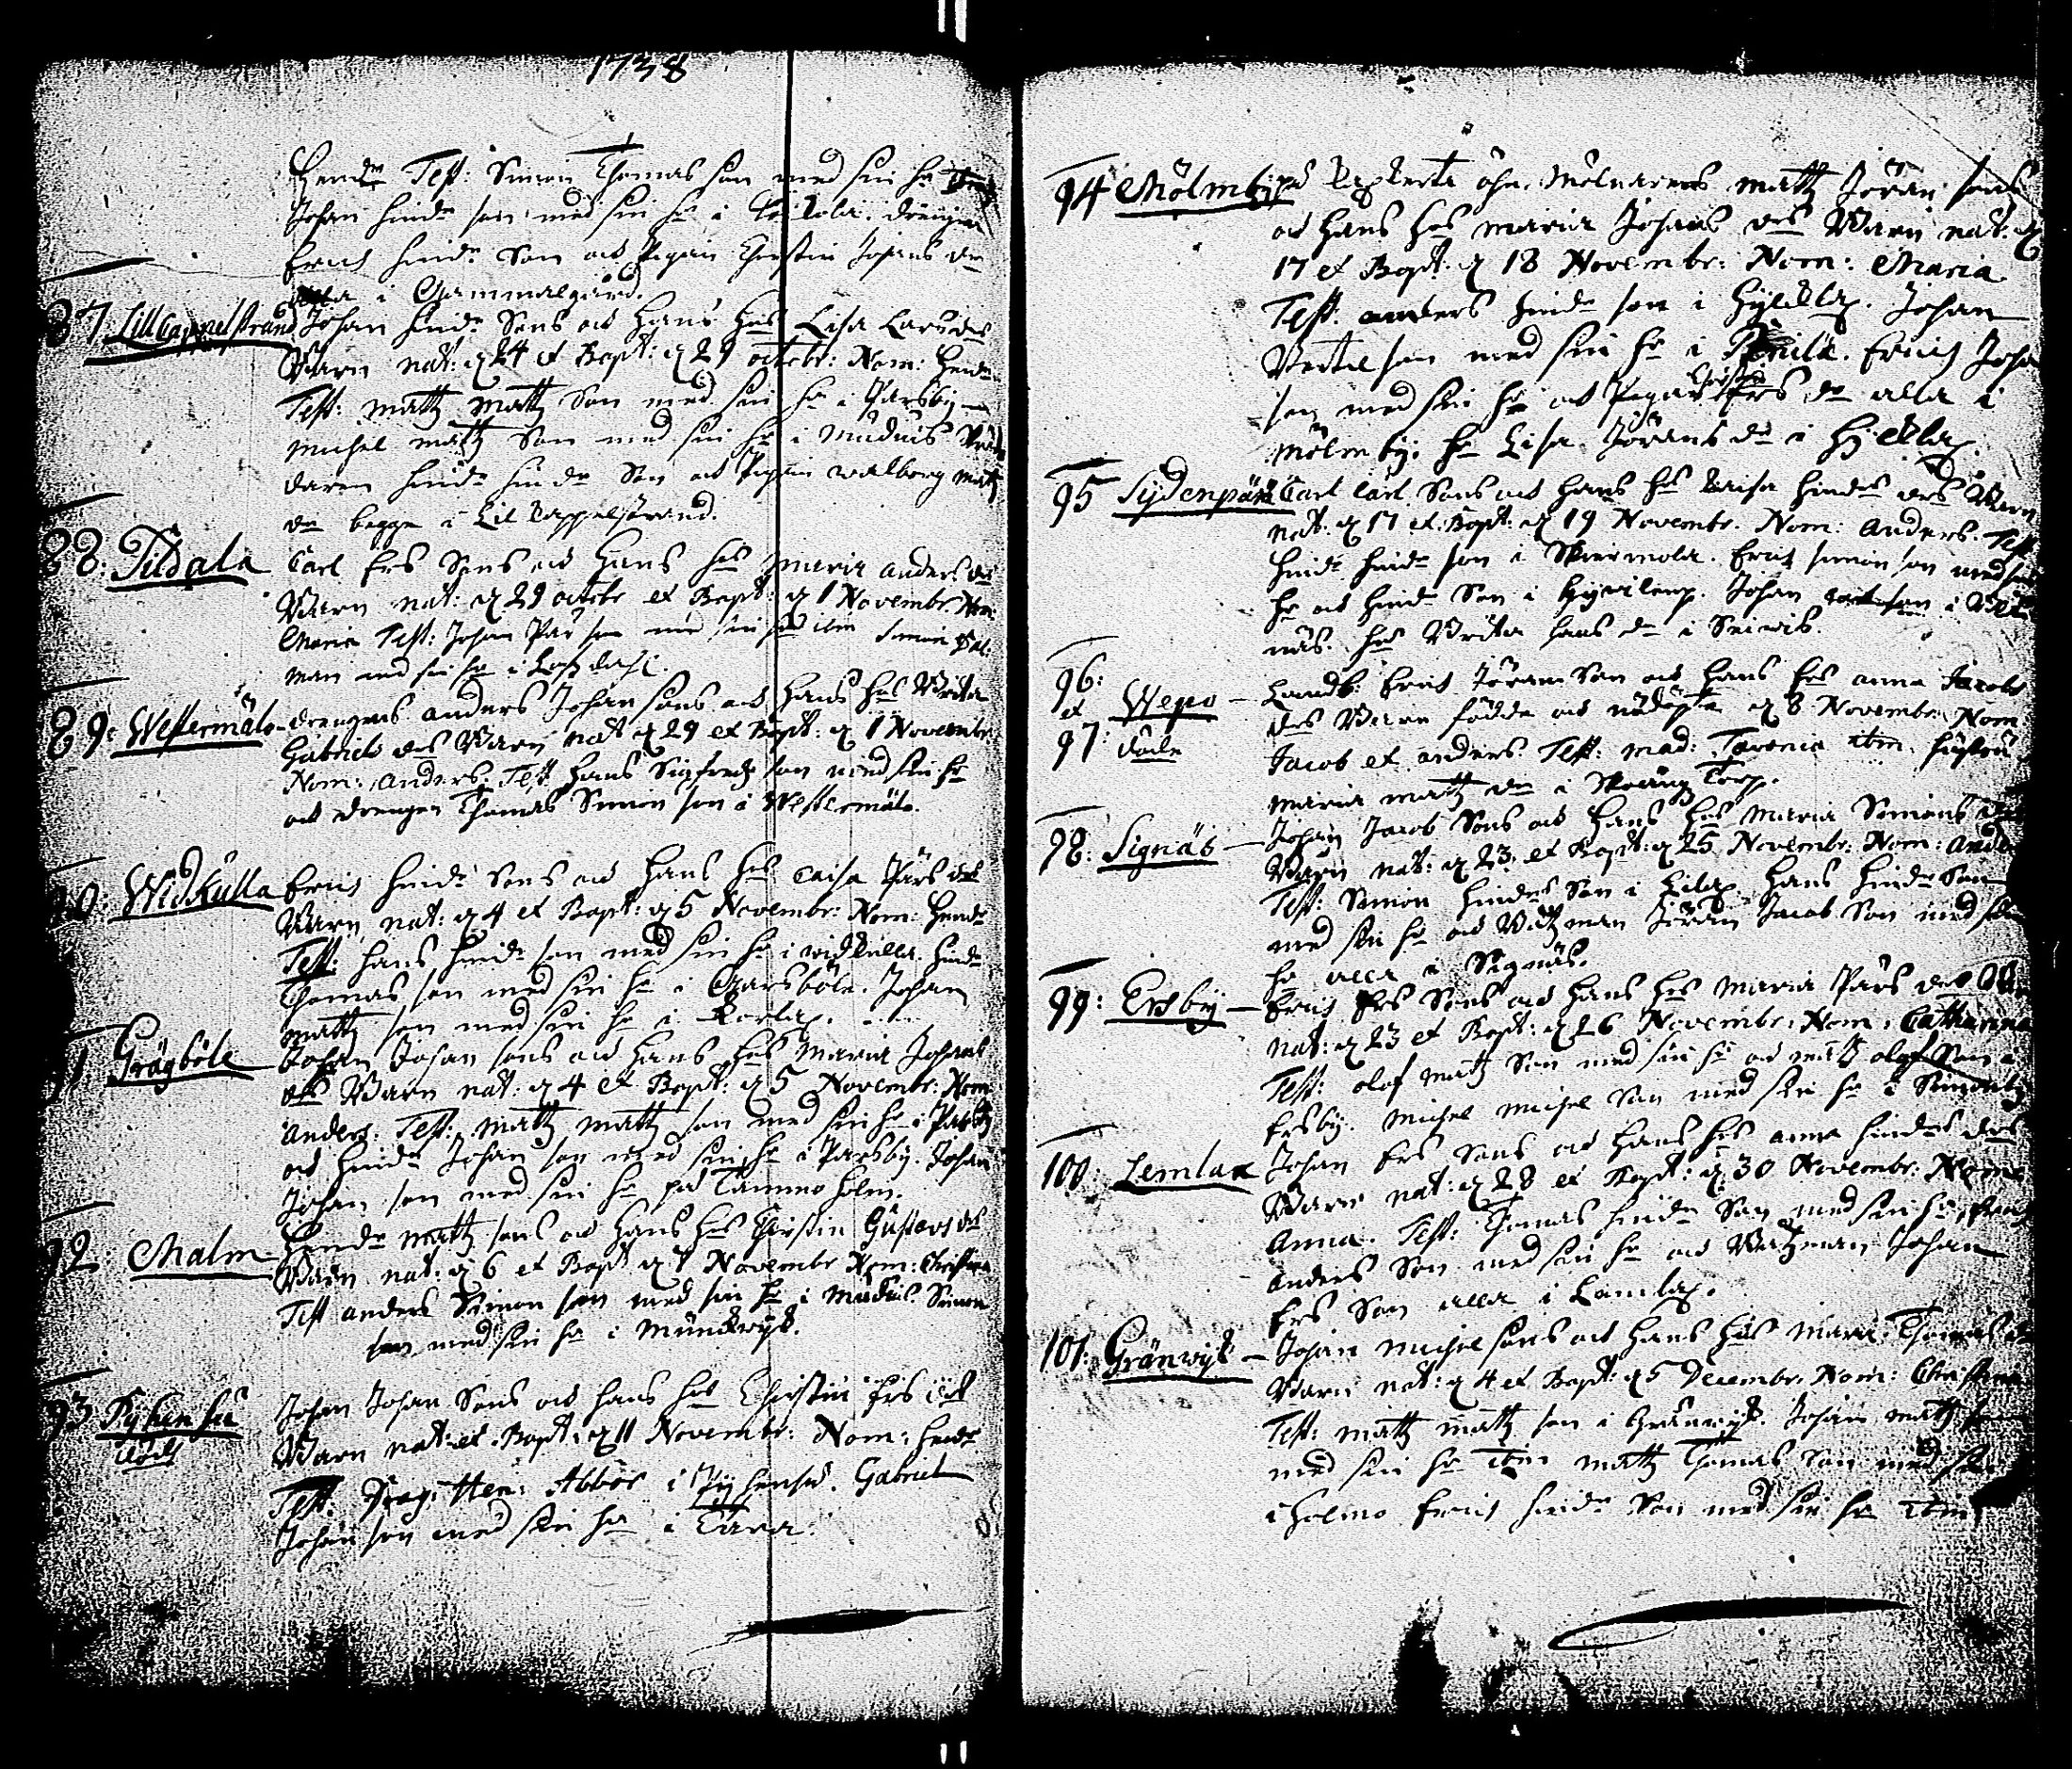 1738
Hendr Test: Simon Thomas son med sin h:
Johan Hindr son med sin h: i drengen
Erich Hindr Son och Pigan Christin Johans dr
alla i Gammalgård.
87: Lillcappelstrand Johan Hindr Sons och Hans h:s Lisa Lars drs
Barn nat: d 24 et Bapt: d 29 octobr: Nom: Hendr
Test: Matz Matz Son med sin h: i Parsby
Michel Matz Son med sin h: i Mudais
daren Hindr Hindr Son och Pigan Walborg Matz
dr begge i Lil Cappelstrand.
88: Tildala Carl Ers Sons och Hans h:s Maria Anders drs
Barn nat: d 29 octobr et Bapt: d 1 Novembr Nom:
Maria Test: Johan Pär son med sin h: ibm Simon
man med sin h: i
89: Westermälö drengens Anders Johan sons och Hans h:s Brita
Gabriels drs Barn nat d 29 et Bapt: d 1 Novembr:
Nom: Anders: Test Hans Sigfredz son med sin h:
och drengen Thomas Simon son i Westermälö.
90: Widkulla Erich Hindr Sons och Hans h:s Caisa Pärs drs
Barn nat: d 4 et Bapt: d 5 Novembr: Nom: Hendr
Test: Hans Hindr son med sin h: i Widkulla. Hindr
Thomas son med sin h: i Garsböle. Johan
Matz son med sin h: i
91 Grågböle Johan Johan sons och Hans h:s Maria Johans
drs Barn nat: d 4 et Bapt: d 5 Novembr: Nom
Anders. Test: Matz Matz son med sin h: i Parsby
och Hindr Johan son med sin h: i Parsby. Johan
Johan son med sin h: på Tammoholm.
92: Malm Hendr Matz sons och Hans h:s Christin Gustavs drs
Barn nat: d 6 et Bapt d 7 Novembr Nom: Christina
Test Anders Simon son med sin h: i Mudais. Simon
son med sin h: i Munckwijk.
93 Pyhensu Johan Johan Sons och Hans h:s Christin Ers drs
död Barn nat: et Bapt: d 11 Novembr: Nom: Hendr
Test: Drag: Hen: Abbor i Pyhensu. Gabriel
Johan son med sin h: i Tära.
94 Mölmby på öhn. Mölnarens Matz Jöran sons
och Hans h:s Maria Johans drs Barn nat: d
17 et Bapt: d 18 Novembr: Nom: Maria.
Test. Anders Hindr son i Hyleklax. Johan
Bertel son med sin h: i Erich Johan
son med sin h: och Pigan Christin Ers dr alla i
Mölmby. h: Lisa Jörans dr i
95 Sydenpärä Carl Carl Sons och Hans h:s Caisa Hindrs drs Barn
nat: d 17 et Bapt: d 19 Novembr. Nom: Anders. Test
Hindr Hindr son i Skinnmola. Erich Simon son med sin
h: och Hindr Son i Johan son i
näs. h:s Brita Hans dr i
96: Landb: Erich Jöran Son och Hans h:s Anna Jacobs
et Wepo drs Barn födde och nödöpte d 8 Novembr: Nom:
97: döde Jacob et Anders. Test: Mad: ibm. hustru
Maria Matz dr i Torp.
98: Signäs Johan Jacob Sons och Hans h:s Maria Simons drs
Barn nat: d 23 et Bapt: d 25 Novembr: Nom: Andr
Test: Simon Hindrs Son i Hans Hindr Son
med sin h: och Båtzman Jöran Jacob Son med sin
h: alla i Signäs.
99: Ersby Erich Ers Sons och Hans h:s Maria Pärs drs
nat: d 23 et Bapt: d 26 Novembr: Nom: Catharina
Test: Olof Matz Son med sin h: och Matz Olof Son i
Ersby. Michel Michel Son med sin h: i Simonby
100: Lemlax Johan Ers Sons och Hans h:s Anna Hindrs drs
Barn nat: d 28 et Bapt: d 30 Novembr: Nom:
Anna. Test: Thomas Hindr Son med sin h:
Anders Son med sin h: och Båtzman Johan
Ers Son alla i Lemlax.
101: Gränwijk Johan Michel sons och Hans h:s Maria Thomas dr
Barn nat: d 4 et Bapt: d 5 Decembr. Nom: Christina
Test: Matz Matz son i Gränwijk. Johan Matz son
med sin h: ibm Matz Thomas Son med sin
i Holmo Erich Hindr Son med sin h: ibm